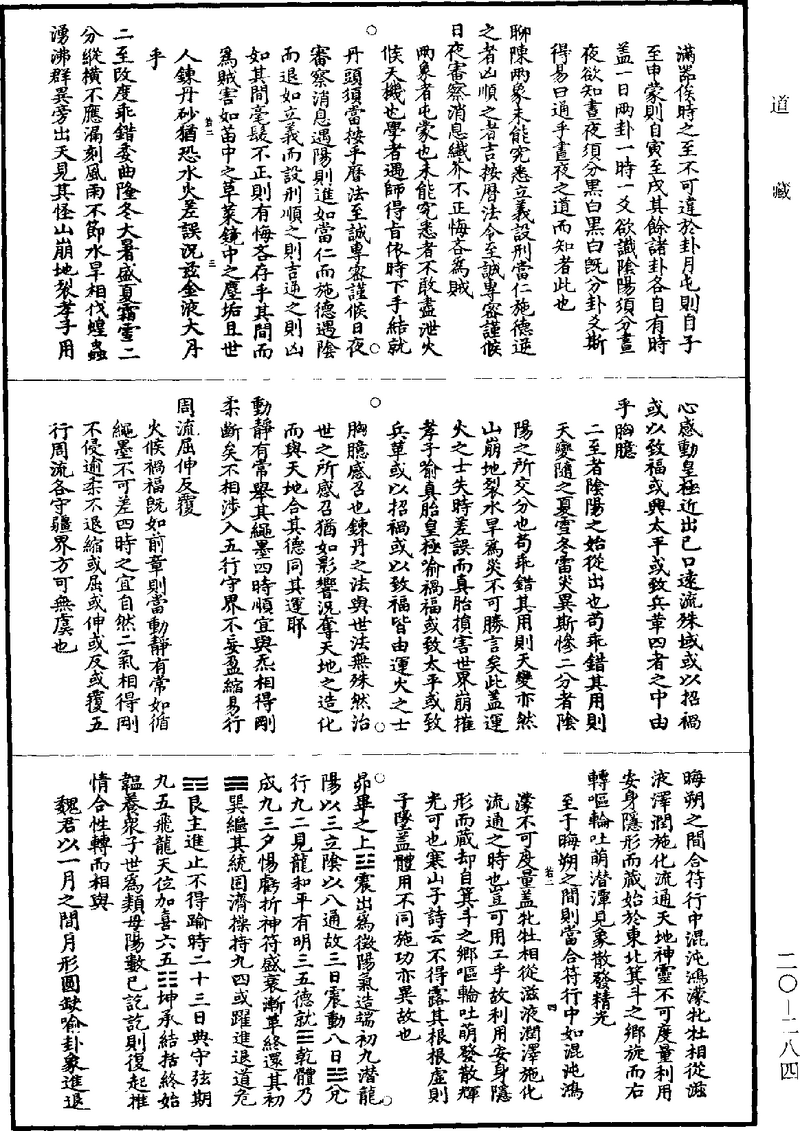 道藏
滿器俟時之至不可違於卦月屯則自子
至申蒙則自寅至戌其餘諸卦各自有時
盖一日兩卦一時一爻欲識陰陽須分晝
夜欲知晝夜須分黑白黑白既分卦爻斯
得易曰通乎晝夜之道而知者此也
聊陳兩象未能究悉立義設刑當仁施德逆
之者凶順之者吉按曆法令至誠專密謹候
日夜審察消息纖芥不正悔吝為賊
兩象者屯蒙也未能究悉者不敢盡泄火
候天機也學者遇師得旨依時下手結就
丹頭須當按乎曆法至誠專密謹候日夜
審察消息遇陽則進如當仁而施德遇陰
而退如立義而設刑順之則吉逆之則凶
如其間毫髮不正則有悔吝存乎其間而
為賊害如苗中之草菜鏡中之塵垢且世
人鍊丹砂猶恐水火差誤況茲金液大丹
乎
二至改度乖錯委曲隆冬大暑盛夏霜雪二
分縱橫不應漏刻風雨不節水旱相伐蝗蟲
湧沸群異旁出天見其怪山崩地裂孝子用
心感動皇極近出己口遠流殊域或以招禍
或以致福或興太平或致兵革四者之中由
乎胸臆
二至者陰陽之始從出也苟乖錯其用則
天變隨之夏雪冬雷災異斯慘二分者陰
陽之所交分也苟乖錯其用則天變亦然
山崩地裂水旱為災不可勝言矣此盖運
火之士失時差誤而真胎損害世界崩摧
孝子喻真胎皇極喻禍福或致太平或致
兵革或以招禍或以致福皆由運火之士
胸臆感召也鍊丹之法與世法無殊然治
世之所感召猶如影響況奪天地之造化
而與天地合其德同其運耶
動靜有常舉其繩墨四時順宜與炁相得剛
柔斷矣不相涉入五行守界不妄盈縮易行
周流屈伸反覆
火候禍福既如前章則當動靜有常如循
繩墨不可差四時之宜自然二氣相得剛
不侵逾柔不退縮或屈或伸或反或覆五
行周流各守疆界方可無虞也
晦朔之間合符行中混沌鴻濛牝牡相從滋
液澤潤施化流通天地神靈不可度量利用
安身隱形而藏始於東北箕斗之鄉旋而右
轉嘔輪吐萌潛潭見象散發精光
至于晦朔之間則當合符行中如混沌鴻
濛不可度量盖牝牡相從滋液潤澤施化
流通之時也豈可用工乎故利用安身隱
形而藏却自箕斗之鄉嘔輪吐萌發散輝
光可也寒山子詩云不得露其根根虛則
子墜盖體用不同施功亦異故也
昴畢之上☳震出為徵陽氣造端初九潛龍
陽以三立陰以八通故三日震動八日☱兌
行九二見龍和平有明三五德就☰乾體乃
成九三夕惕虧折神符盛衰漸革終還其初
☴巽繼其統固濟操持九四或躍進退道危
☶艮主進止不得踰時二十三日典守弦期
九五飛龍天位加喜六五☷坤承結括終始
韞養衆子世為類母陽數已訖訖則復起推
情合性轉而相與
魏君以一月之間月形圓缺喻卦象進退
若二
三
若二
四
二〇-二八四